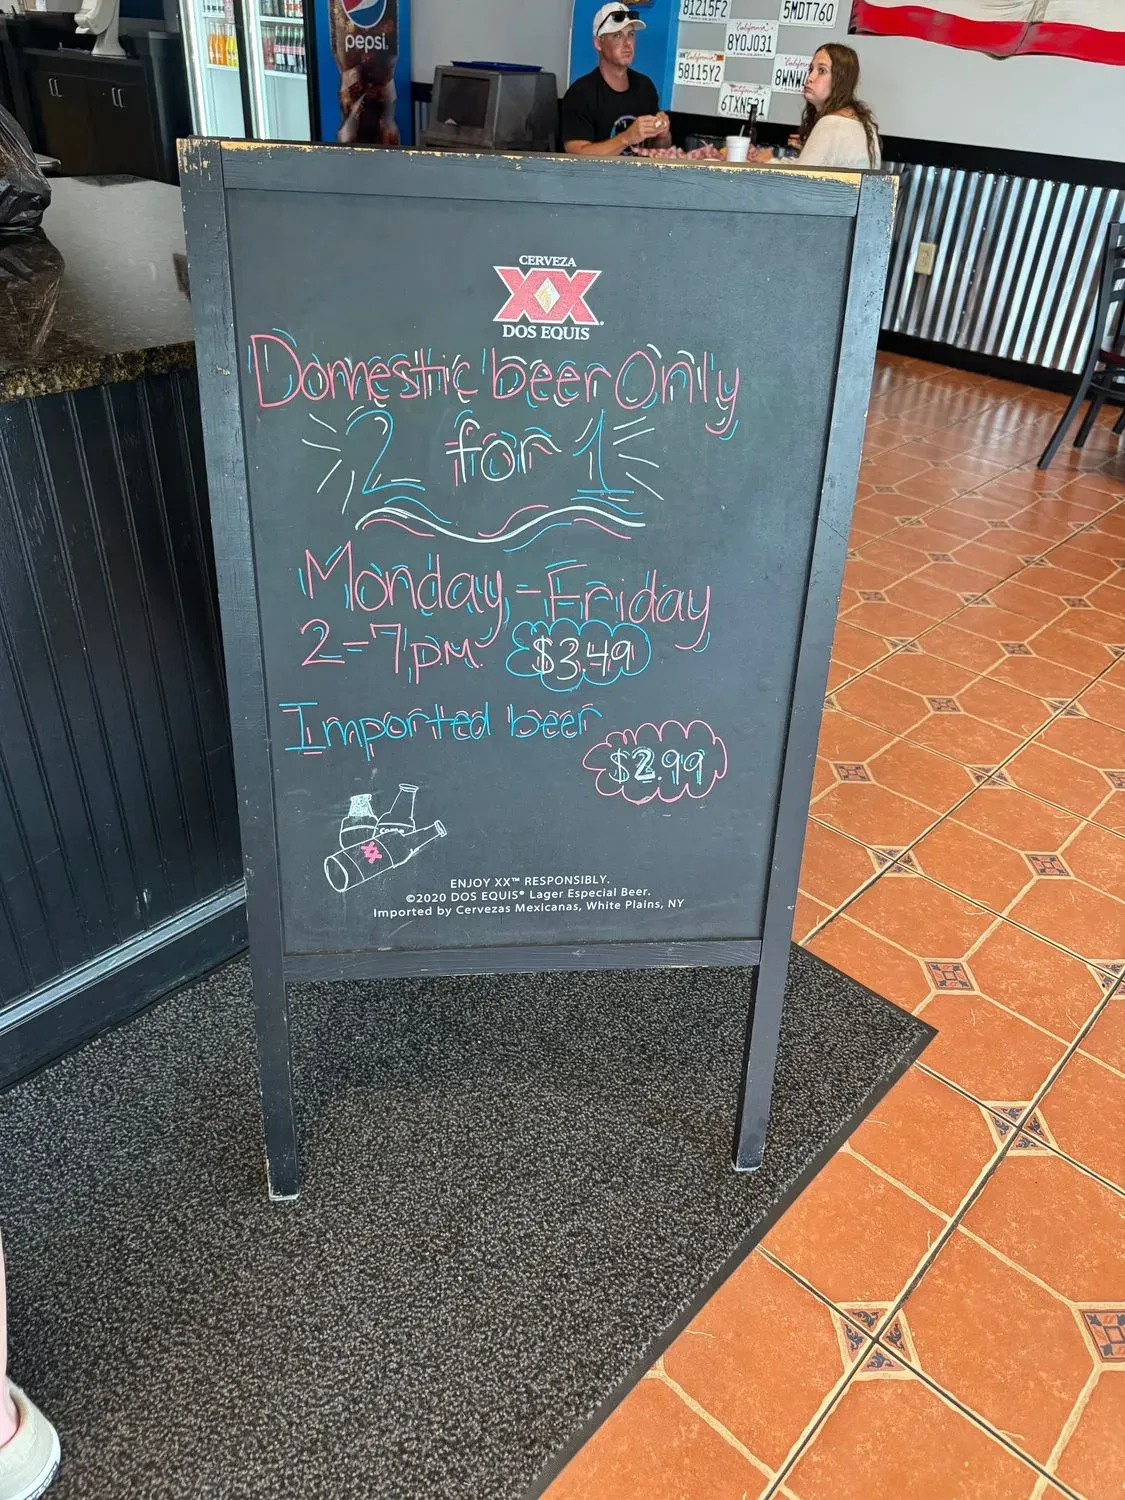 81215F2
5MDT760
California
8YOJ031
58115Y2
California
6TXN521
pepsi
CERVEZA
XX
DOS EQUIS
Domestic beer Only
2 for 1
Monday - Friday
2-7pm. $3.49
Imported beer
$2.99
XX
ENJOY XX™ RESPONSIBLY.
©2020 DOS EQUIS® Lager Especial Beer.
Imported by Cervezas Mexicanas, White Plains, NY